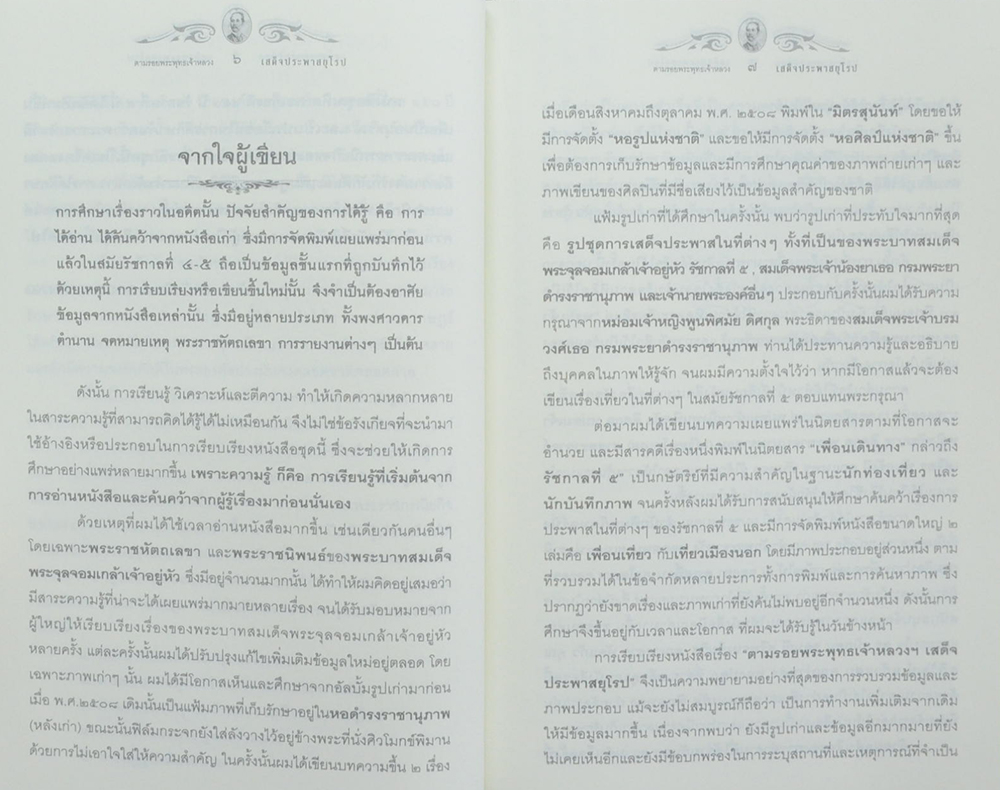 ตามรอยพระพุทธเจ้าหลวง ๖ เสด็จประพาสยุโรป
จากใจผู้เขียน
การศึกษาเรื่องราวในอดีตนั้น ปัจจัยสำคัญของการได้รู้ คือ การ
ได้อ่าน ได้ค้นคว้าจากหนังสือเก่า ซึ่งมีการจัดพิมพ์เผยแพร่มาก่อน
แล้วในสมัยรัชกาลที่ ๔-๕ ถือเป็นข้อมูลชั้นแรกที่ถูกบันทึกไว้
ด้วยเหตุนี้ การเรียบเรียงหรือเขียนขึ้นใหม่นั้น จึงจำเป็นต้องอาศัย
ข้อมูลจากหนังสือเหล่านั้น ซึ่งมีอยู่หลายประเภท ทั้งพงศาวดาร
ตำนาน จดหมายเหตุ พระราชหัตถเลขา การรายงานต่างๆ เป็นต้น
ดังนั้น การเรียนรู้ วิเคราะห์และตีความ ทำให้เกิดความหลากหลาย
ในสาระความรู้ที่สามารถคิดได้รู้ได้ไม่เหมือนกัน จึงไม่ใช่ข้อรังเกียจที่จะนำมา
ใช้อ้างอิงหรือประกอบในการเรียบเรียงหนังสือชุดนี้ ซึ่งจะช่วยให้เกิดการ
ศึกษาอย่างแพร่หลายมากขึ้น เพราะความรู้ ก็คือ การเรียนรู้ที่เริ่มต้นจาก
การอ่านหนังสือและค้นคว้าจากผู้รู้เรื่องมาก่อนนั่นเอง
ด้วยเหตุที่ผมได้ใช้เวลาอ่านหนังสือมากขึ้น เช่นเดียวกับคนอื่นๆ
โดยเฉพาะพระราชหัตถเลขา และพระราชนิพนธ์ของพระบาทสมเด็จ
พระจุลจอมเกล้าเจ้าอยู่หัว ซึ่งมีอยู่จำนวนมากนั้น ได้ทำให้ผมคิดอยู่เสมอว่า
มีสาระความรู้ที่น่าจะได้เผยแพร่มากมายหลายเรื่อง จนได้รับมอบหมายจาก
ผู้ใหญ่ให้เรียบเรียงเรื่องของพระบาทสมเด็จพระจุลจอมเกล้าเจ้าอยู่หัว
หลายครั้ง แต่ละครั้งนั้นผมได้ปรับปรุงแก้ไขเพิ่มเติมข้อมูลใหม่อยู่ตลอด โดย
เฉพาะภาพเก่าๆ นั้น ผมได้มีโอกาสเห็นและศึกษาจากอัลบั้มรูปเก่ามาก่อน
เมื่อ พ.ศ.๒๕๐๘ เดิมนั้นเป็นแฟ้มภาพที่เก็บรักษาอยู่ในหอดำรงราชานุภาพ
(หลังเก่า) ขณะนั้นฟิล์มกระจกยังใส่ลังวางไว้อยู่ข้างพระที่นั่งศิวโมกข์พิมาน
ด้วยการไม่เอาใจใส่ให้ความสำคัญ ในครั้งนั้นผมได้เขียนบทความขึ้น ๒ เรื่อง
ตามรอยพระพุทธเจ้าหลวง ๗ เสด็จประพาสยุโรป
เมื่อเดือนสิงหาคมถึงตุลาคม พ.ศ. ๒๕๐๘ พิมพ์ใน “มิตรสุนันท์” โดยขอให้
มีการจัดตั้ง “หอรูปแห่งชาติ” และขอให้มีการจัดตั้ง “หอศิลป์แห่งชาติ” ขึ้น
เพื่อต้องการเก็บรักษาข้อมูลและมีการศึกษาคุณค่าของภาพถ่ายเก่าๆ และ
ภาพเขียนของศิลปินที่มีชื่อเสียงไว้เป็นข้อมูลสำคัญของชาติ
แฟ้มรูปเก่าที่ได้ศึกษาในครั้งนั้น พบว่ารูปเก่าที่ประทับใจมากที่สุด
คือ รูปชุดการเสด็จประพาสในที่ต่างๆ ทั้งที่เป็นของพระบาทสมเด็จ
พระจุลจอมเกล้าเจ้าอยู่หัว รัชกาลที่ ๕ , สมเด็จพระเจ้าน้องยาเธอ กรมพระยา
ดำรงราชานุภาพ และเจ้านายพระองค์อื่นๆ ประกอบกับครั้งนั้นผมได้รับความ
กรุณาจากหม่อมเจ้าหญิงพูนพิศมัย ดิศกุล พระธิดาของสมเด็จพระเจ้าบรม
วงศ์เธอ กรมพระยาดำรงราชานุภาพ ท่านได้ประทานความรู้และอธิบาย
ถึงบุคคลในภาพให้รู้จัก จนผมมีความตั้งใจไว้ว่า หากมีโอกาสแล้วจะต้อง
เขียนเรื่องเที่ยวในที่ต่างๆ ในสมัยรัชกาลที่ ๕ ตอบแทนพระกรุณา
ต่อมาผมได้เขียนบทความเผยแพร่ในนิตยสารตามที่โอกาสจะ
อำนวย และมีสารคดีเรื่องหนึ่งพิมพ์ในนิตยสาร “เพื่อนเดินทาง” กล่าวถึง
รัชกาลที่ ๕” เป็นกษัตริย์ที่มีความสำคัญในฐานะนักท่องเที่ยว และ
นักบันทึกภาพ จนครั้งหลังผมได้รับการสนับสนุนให้ศึกษาค้นคว้าเรื่องการ
ประพาสในที่ต่างๆ ของรัชกาลที่ ๕ และมีการจัดพิมพ์หนังสือขนาดใหญ่ ๒
เล่มคือ เพื่อนเที่ยว กับเที่ยวเมืองนอก โดยมีภาพประกอบอยู่ส่วนหนึ่ง ตาม
ที่รวบรวมได้ในข้อจำกัดหลายประการทั้งการพิมพ์และการค้นหาภาพ ซึ่ง
ปรากฏว่ายังขาดเรื่องและภาพเก่าที่ยังค้นไม่พบอยู่อีกจำนวนหนึ่ง ดังนั้นการ
ศึกษาจึงขึ้นอยู่กับเวลาและโอกาส ที่ผมจะได้รับรู้ในวันข้างหน้า
การเรียบเรียงหนังสือเรื่อง “ตามรอยพระพุทธเจ้าหลวงฯ เสด็จ
ประพาสยุโรป” จึงเป็นความพยายามอย่างที่สุดของการรวบรวมข้อมูลและ
ภาพประกอบ แม้จะยังไม่สมบูรณ์ก็ถือว่า เป็นการทำงานเพิ่มเติมจากเดิม
ให้มีข้อมูลมากขึ้น เนื่องจากพบว่า ยังมีรูปเก่าและข้อมูลอีกมากมายที่ยัง
ไม่เคยเห็นอีกและยังมีข้อบกพร่องในการระบุสถานที่และเหตุการณ์ที่จำเป็น